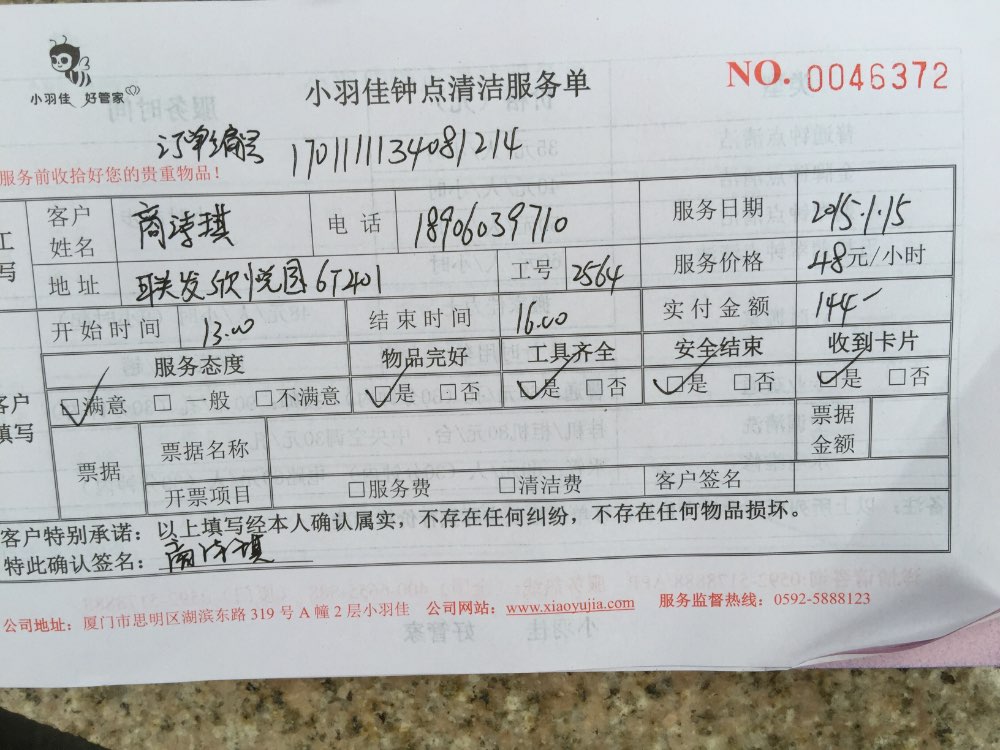 小羽佳 好管家
小羽佳钟点清洁服务单
NO. 0046372
订单编号 170111134081214
服务前收拾好您的贵重物品！
客户姓名 商诗琪 电话 18906039710 服务日期 2015.1.15
地址 联发欣悦园6T401 工号 2564 服务价格 48元/小时
开始时间 13.00 结束时间 16.00 实付金额 144
服务态度 物品完好 工具齐全 安全结束 收到卡片
☑满意 □一般 □不满意 ☑是 □否 ☑是 □否 ☑是 □否 ☑是 □否
票据 票据名称 票据金额
开票项目 □服务费 □清洁费 客户签名
客户特别承诺：以上填写经本人确认属实，不存在任何纠纷，不存在任何物品损坏。
特此确认签名：商诗琪
公司地址：厦门市思明区湖滨东路 319 号 A 幢 2 层小羽佳 公司网站：www.xiaoyujia.com 服务监督热线：0592-5888123